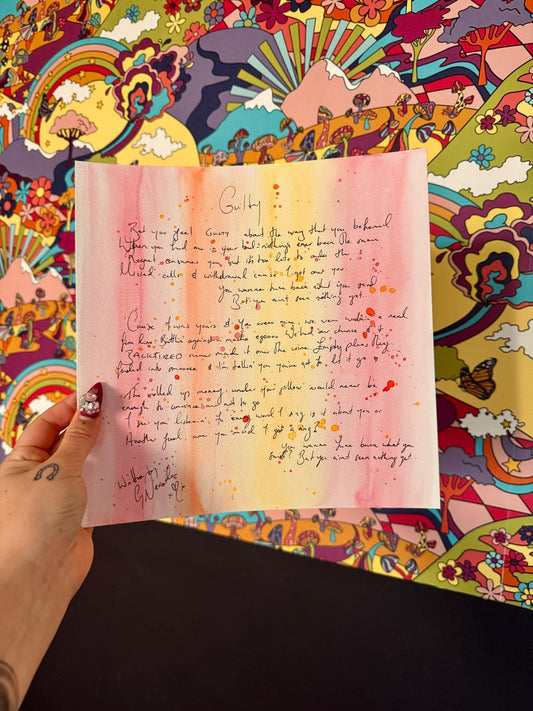 Guilty
But you feel Guilty about the way that you behaved
When you had me in your bed nothings ever been the same
Regret consumes you, but its too late to make the
Missed calls & withdrawal cause I got over you
You wanna turn back what you said
But you aint seen nothing yet...
Cause I was yours & You were mine, we were walking a
fine line Battlin against egos We had our chance & it
BACKFIRED never made it over the line Empty plans they
turned into & I'm tellin you you've got to let it go
The rolled up money under your pillow would never be
enough to convince me not to go
I see you listenin, to every word I sing is it about you or
Another fool, are you mad I got a ring?
You wanna turn back what you
said? But you aint seen nothing yet...
Written by